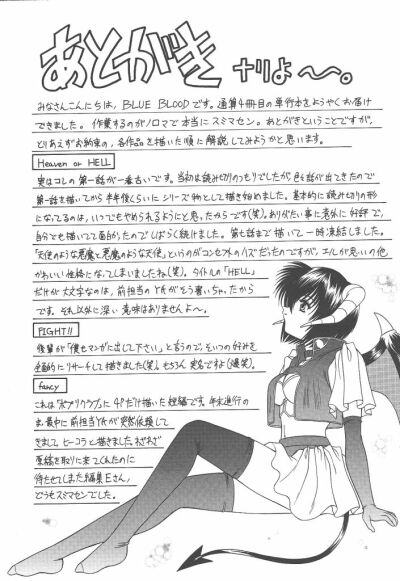 あとがき ナリよ〜。
みなさんこんにちは，BLUE BLOODです。通算4冊目の単行本をようやくお届け
できました。作業するのがノロマで本当にスミマセン。あとがきということですが，
とりあえずお約束の，各作品を描いた順に解説してみようかと思います。
Heaven or HELL
実はコレの第一話が一番古いです。当初は読み切りのつもりでしたが，色々話が出てきたので
第一話を描いてから半年後くらいにシリーズ物として描き始めました。基本的に読み切りの形
になってるのは，いつでもやめられるようにと思ったからです(笑)。ありがたい事に意外に好評で，
自分でも描いてて面白かったのでしばらく続けました。第七話まで描いて一時凍結しました。
「天使のような悪魔と悪魔のような天使」というのがコンセプトのハズだったのですが，エルが思いの他
かわいい性格になってしまいましたね(笑)。タイトルの「HELL」
だけが大文字なのは，前担当のY氏がそう書いちゃったから
です。それ以外に深い意味はありませんよ〜。
FIGHT!!
後輩が「僕もマンガに出して下さい」と言うので，そいつの好みを
全面的にリサーチして描きました(笑)。もちろん実名ですよ(爆笑)。
fancy
これは「ポプリクラブ」に4Pだけ描いた短編です。年末進行の
ま，最中に前担当Y氏が突然依頼して
きまして，ヒーコラと描きました。わざわざ
原稿を取りに来てくれたのに
待たせてしまた編集Eさん，
どうもスミマセンでした。